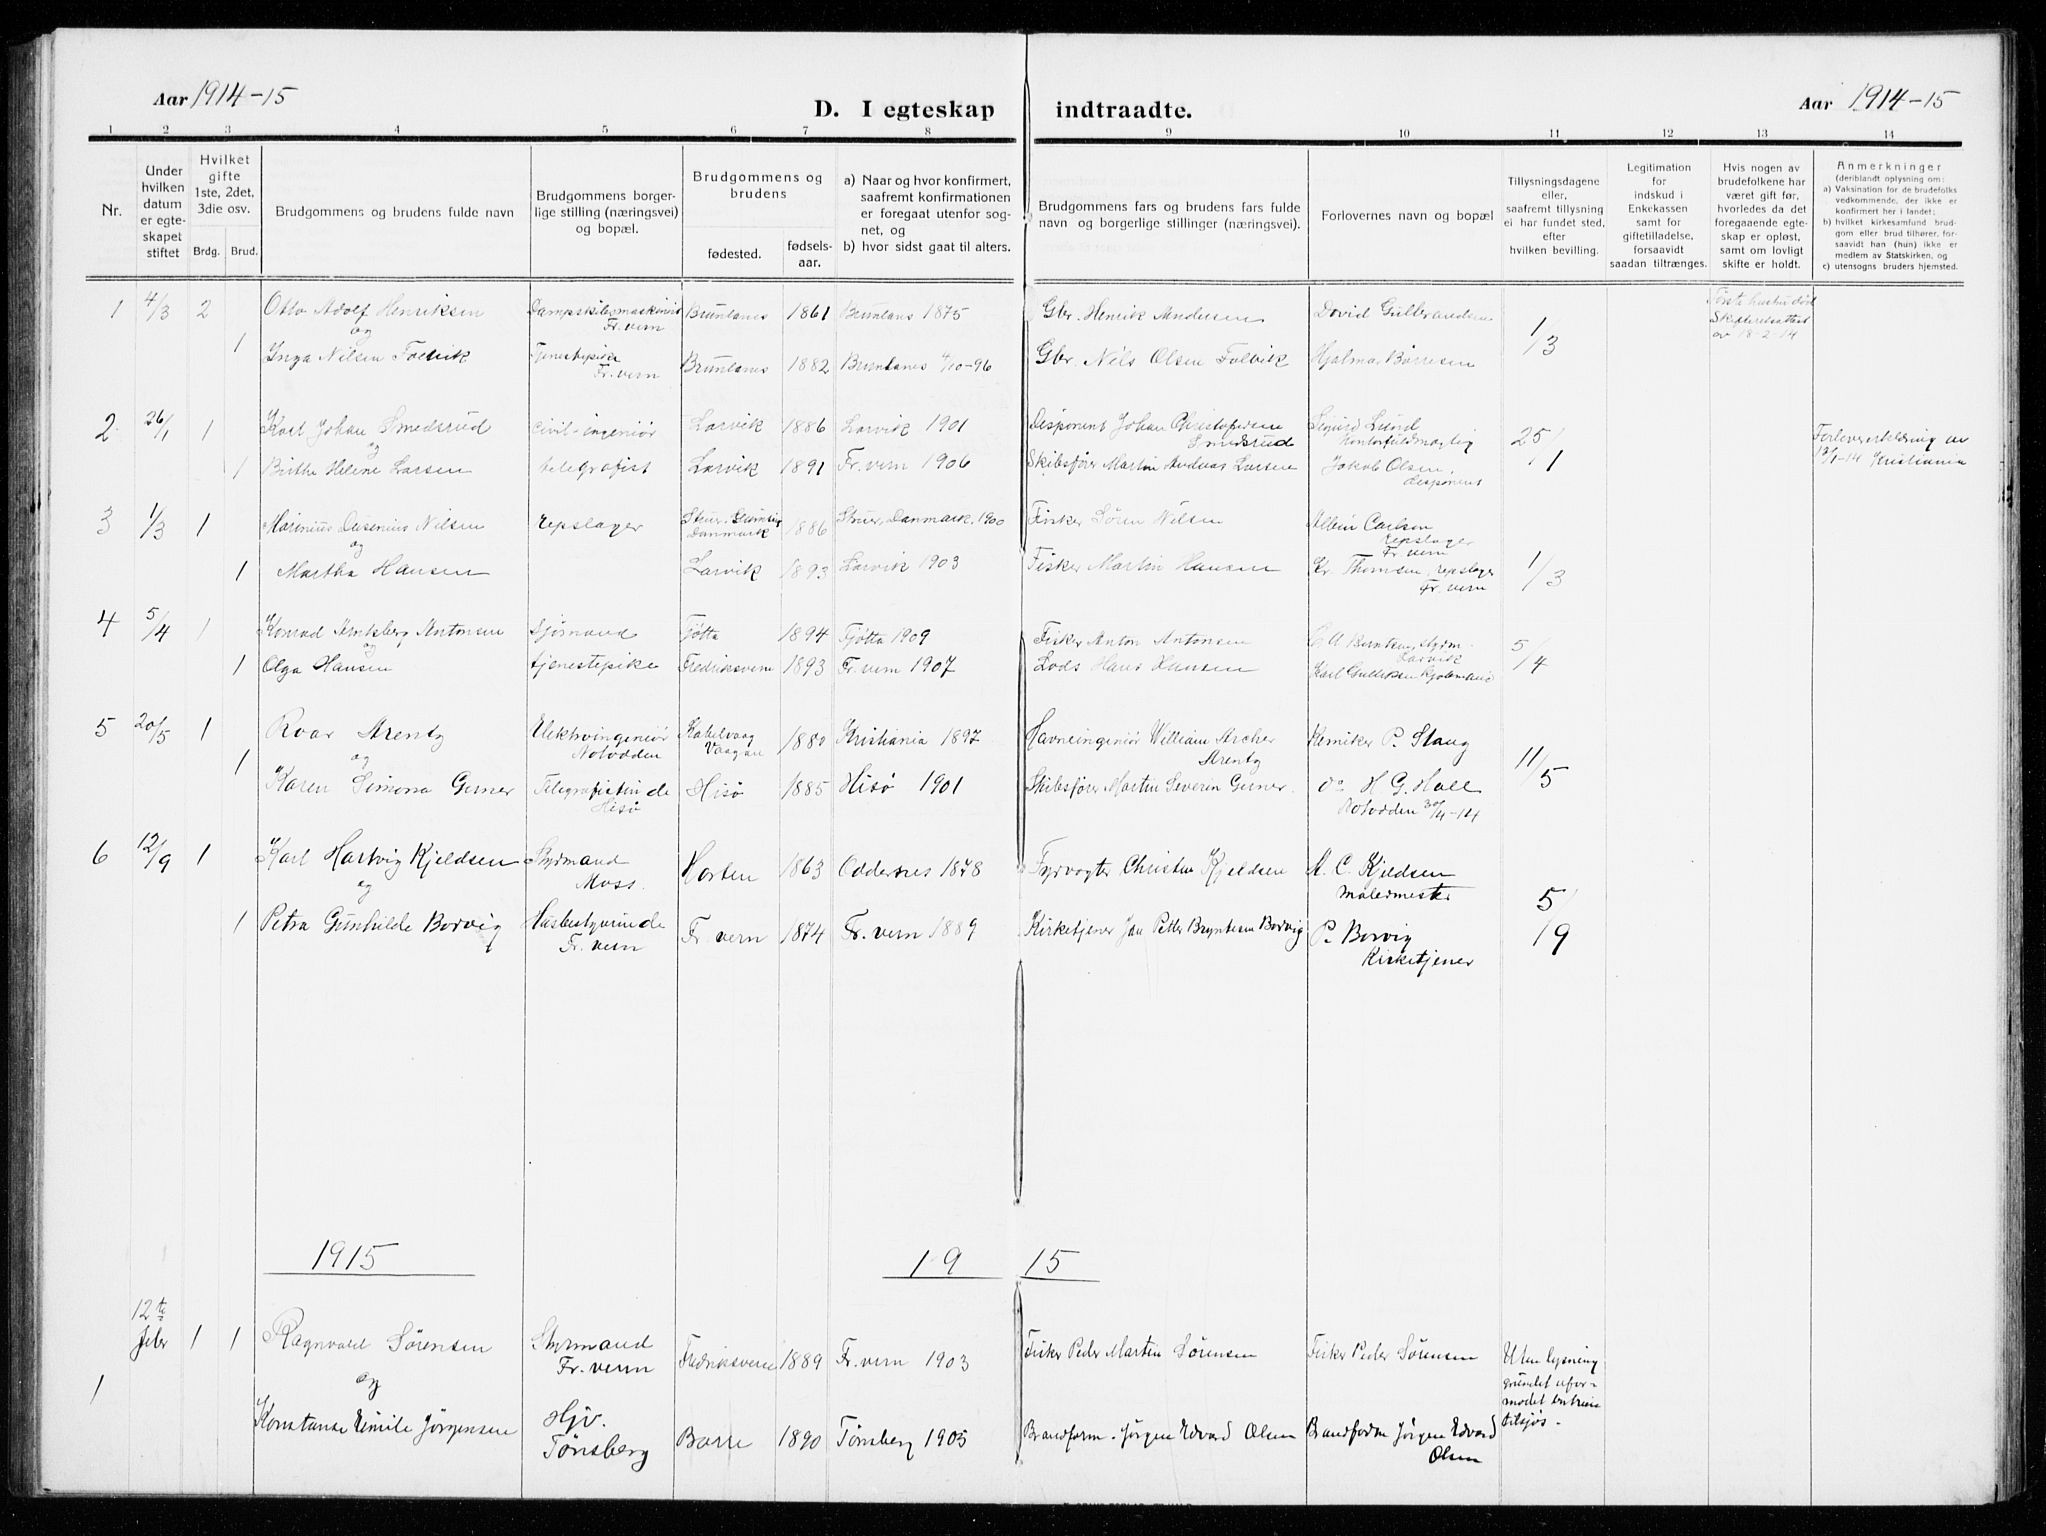 Aar 1914-15
D. I egteskap indtraadte.
Aar 1914-15
1 2 3 4 5 6 7 8 9 10 11 12 13 14
Nr.
Under hvilken datum er egteskapet stiftet
Hvilket gifte 1ste, 2det, 3die osv.
Brdg. Brud.
Brudgommens og brudens fulde navn
Brudgommens borgerlige stilling (næringsvei) og bopæl.
Brudgommens og brudens
fødested.
fødselsaar.
a) Naar og hvor konfirmert, saafremt konfirmationen er foregaat utenfor sognet, og
b) hvor sidst gaat til alters.
Brudgommens fars og brudens fars fulde navn og borgerlige stillinger (næringsvei).
Forlovernes navn og bopæl
Tillysningsdagene eller, saafremt tillysning ei har fundet sted, efter hvilken bevilling.
Legitimation for indskud i Enkekassen samt for giftetilladelse, forsaavidt saadan tiltrænges.
Hvis nogen av brudefolkene har været gift før, hvorledes da det foregaaende egteskap er opløst, samt om lovligt skifte er holdt.
Anmerkninger
(deriblandt oplysning om:
a) Vaksination for de brudefolks vedkommende, der ikke er konfirmert her i landet;
b) hvilket kirkesamfund brudgom eller brud tilhører, forsaavidt han (hun) ikke er medlem av Statskirken, og
c) utensogns bruders hjemsted.
1 4/3 2 Otto Adolf Henriksen Dampskibsmaskinist Fr.vern Brunlanes 1861 Brunlans 1875 Gbr. Henrik Andersen David Gulbrandsen 1/3 Første hustru død Skifteretsattest av 18-2-14
og
1 Inga Nilsen Folvik Tjenestepike Fr.vern Brunlanes 1882 Brunlanes 4/10-96 Gbr. Nils Olsen Folvik Hjalmar Børresen
2 26/1 1 Karl Johan Smedsrud Civil-ingeniør Larvik 1886 Larvik 1901 Disponent Johan Christofersen Smedsrud Sigurd Lund Kontorfuldmægtig 25/1 Forlovererklæring av 13/1-14 Kristiania
og
1 Birthe Helene Larsen telegrafist Larvik 1891 Fr.vern 1906 Skibsfører Martin Andreas Larsen Jakob Olsen, disponent
3 1/3 1 Marinius Nilsen repslager Danmark 1886 Struer, Danmark, 1900 Fisker Søren Nilsen Albin Carlsen repslager Fr.vern
og
1 Martha Hansen Larvik 1893 Larvik 1903 Fisker Martin Hansen Kr. Thomsen, repslager Fr.vern 1/3
4 5/4 1 Konrad Antonsen sjømand Tjøtta 1894 Tjøtta 1909 Fisker Anton Antonsen styrm. Larvik 5/4
og
1 Olga Hansen tjenestepike Fredriksvern 1893 Fr.vern 1907 Lods Hans Hansen Karl Gulliksen
5 20/5 1 Roar Arentz Elektroingeniør Notodden Kabelvaag Vaagan 1880 Kristiania 1897 Havneingeniør William Archer Arentz Kemiker P. Stang 11/5
og
1 Karen Simona Gerner Telegrafistinde Hisø Hisø 1885 Hisø 1901 Skibsfører Martin Severin Gerner. do H. G. Hall Notodden 30/4-14
6 12/9 1 Karl Hartvig Kjeldsen Styrmand Moss. Horten 1863 Oddernes 1878 Fyrvogter Christen Kjeldsen M. C. Kjeldsen malermester 5/9
og
1 Petra Gunhilde Borvig Husbestyrerinde Fr.vern Fr.vern 1874 Fr.vern 1889 Kirketjener Jan Petter Bryntesen Borvig P. Borvig Kirketjener
1915 19 15
1 12te febr 1 1 Ragnvald Sørensen Styrmand Fr.vern Fredriksvern 1889 Fr.vern 1903 Fisker Peder Martin Sørensen Fisker Peder Sørensen Uten lysning grundet uformodet tilsjøs.
og
Konstanse Emilie Jørgensen Hjv. Tønsberg Borre 1890 Tønsberg 1905 Brandform. Jørgen Edvard Olsen Brandform Jørgen Edvard Olsen